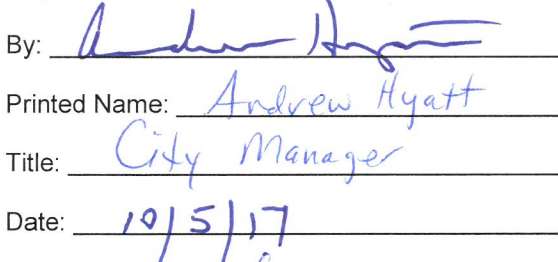 By: Andrew Hyatt
Printed Name: Andrew Hyatt
Title: City Manager
Date: 10/5/17